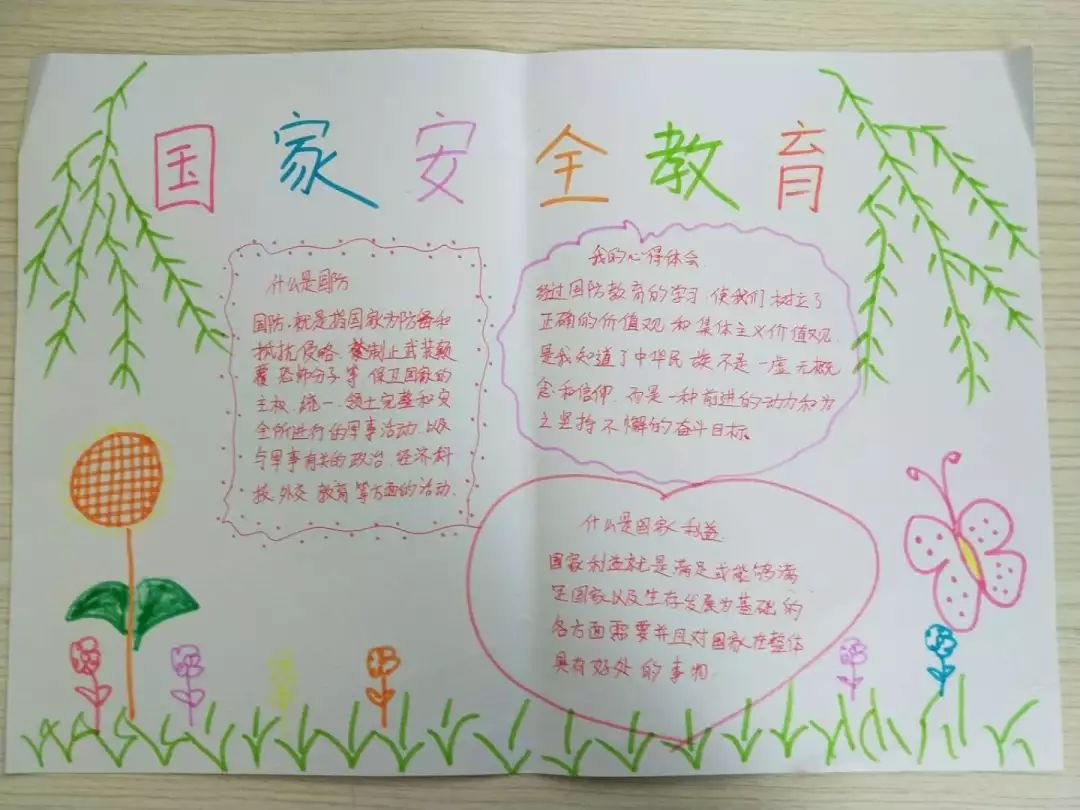 国家安全教育
什么是国防
国防,就是指国家为防备和
抵抗侵略、制止武装颠
覆恐怖分子等,保卫国家的
主权、统一、领土完整和安
全所进行的军事活动,以及
与军事有关的政治、经济科
技、外交、教育等方面的活动.
我的心得体会
经过国防教育的学习,使我们树立了
正确的价值观和集体主义价值观,
是我知道了中华民族不是一虚无概
念和信仰,而是一种前进的动力和为
之坚持不懈的奋斗目标.
什么是国家利益
国家利益就是满足或能够满
足国家以及生存发展为基础的
各方面需要并且对国家在整体
具有好处的事物.